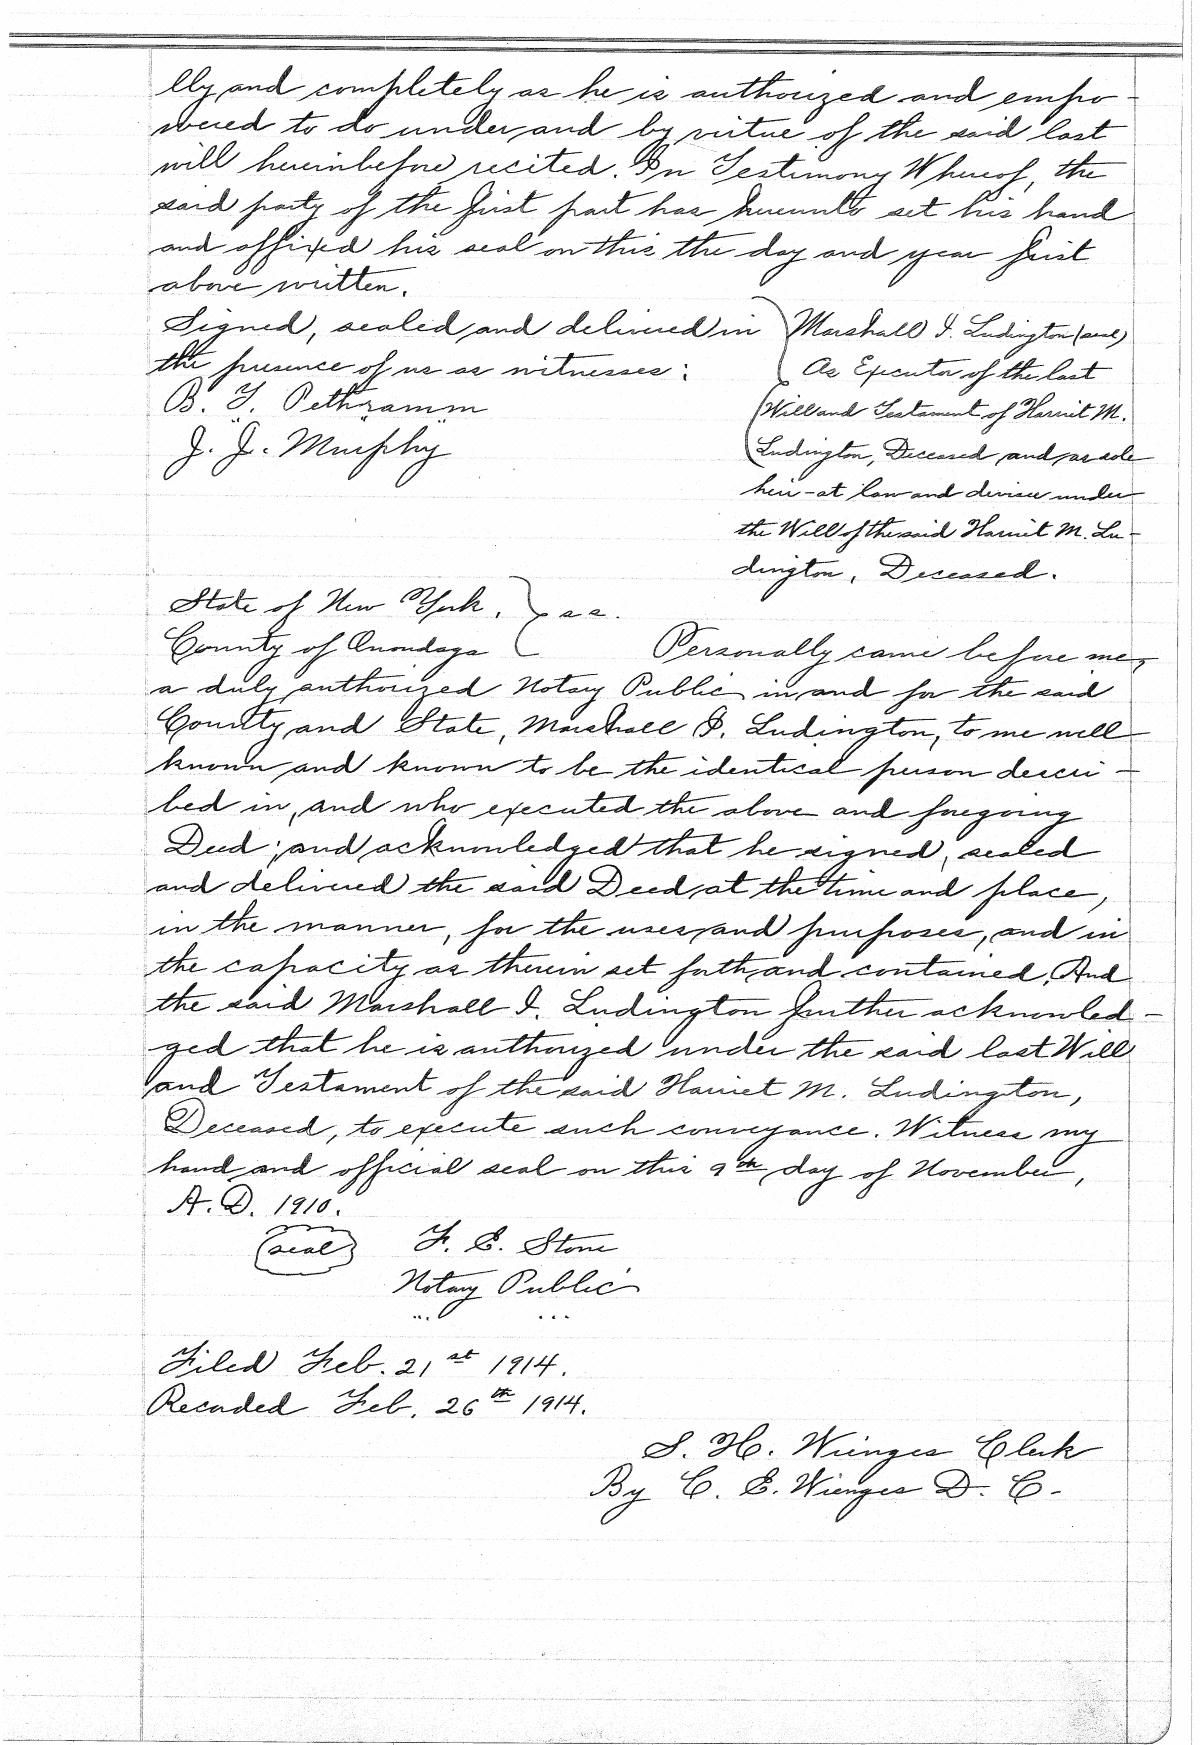 lly and completely as he is authorized and empo-
wered to do under and by virtue of the said last
will hereinbefore recited. In Testimony Whereof, the
said party of the first part has hereunto set his hand
and affixed his seal on this the day and year first
above written.
Signed, sealed and delivered in
the presence of us as witnesses:
B. T. Pethramm
J. J. Murphy
Marshall I. Ludington (seal)
As Executor of the last
Will and Testament of Harriet M.
Ludington, Deceased and as sole
heir-at law and devisee under
the Will of the said Harriet M. Lu-
dington, Deceased.
State of New York. } s s.
County of Onondaga
Personally came before me,
a duly authorized Notary Public in and for the said
County and State, Marshall I. Ludington, to me well
known and known to be the identical person descri-
bed in, and who executed the above and foregoing
Deed; and acknowledged that he signed, sealed
and delivered the said Deed at the time and place,
in the manner, for the uses and purposes, and in
the capacity as therein set forth and contained. And
the said Marshall I. Ludington further acknowled-
ged that he is authorized under the said last Will
and Testament of the said Harriet M. Ludington,
Deceased, to execute such conveyance. Witness my
hand and official seal on this 9th day of November,
A. D. 1910.
(seal) F. E. Stone
Notary Public
Filed Feb. 21st 1914.
Recorded Feb. 26th 1914.
S. H. Wienges Clerk
By C. E. Wienges D. C.